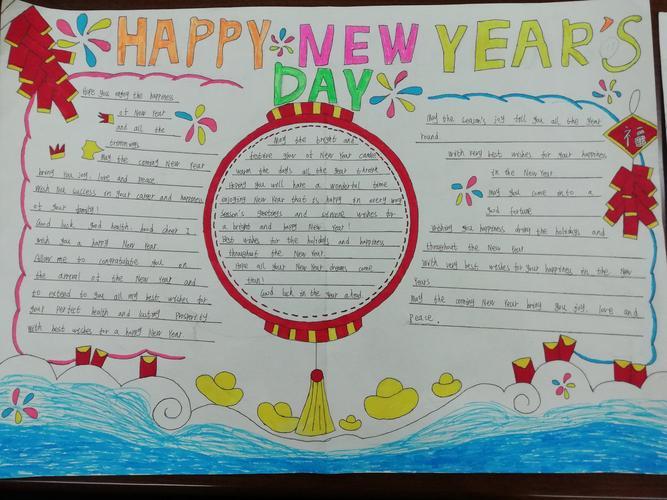 HAPPY NEW YEAR'S
DAY
Hope you enjoy the happiness
of New Year
and all the
trimmings
May the coming New Year
bring you joy, love and peace
Wish you success in your career and happiness
of your family!
Good luck good health, good cheer I
wish you a happy New Year.
Allow me to congratulate you on
the arrival of the New Year and
to extend to you all my best wishes for
your perfect health and lasting prosperity
With best wishes for a happy New Year!
May the bright and
festive glow of New Year candle
warm the days all the year through
Hoping you will have a wonderful time
enjoying New Year that is happy in every way
season's greetings and sincere wishes for
a bright and happy New Year!
Best wishes for the holidays and happiness
throughout the New Year.
Hope all your New Year dreams come
true!
Good luck in the year ahead.
May the season's joy fill you all the year
round.
With very best wishes for your happiness
in the New Year
May you come into a
good fortune
Wishing you happiness during the holidays and
throughout the New Year
With very best wishes for your happiness in the New
years
May the coming New Year bring you joy, love and
peace.
福